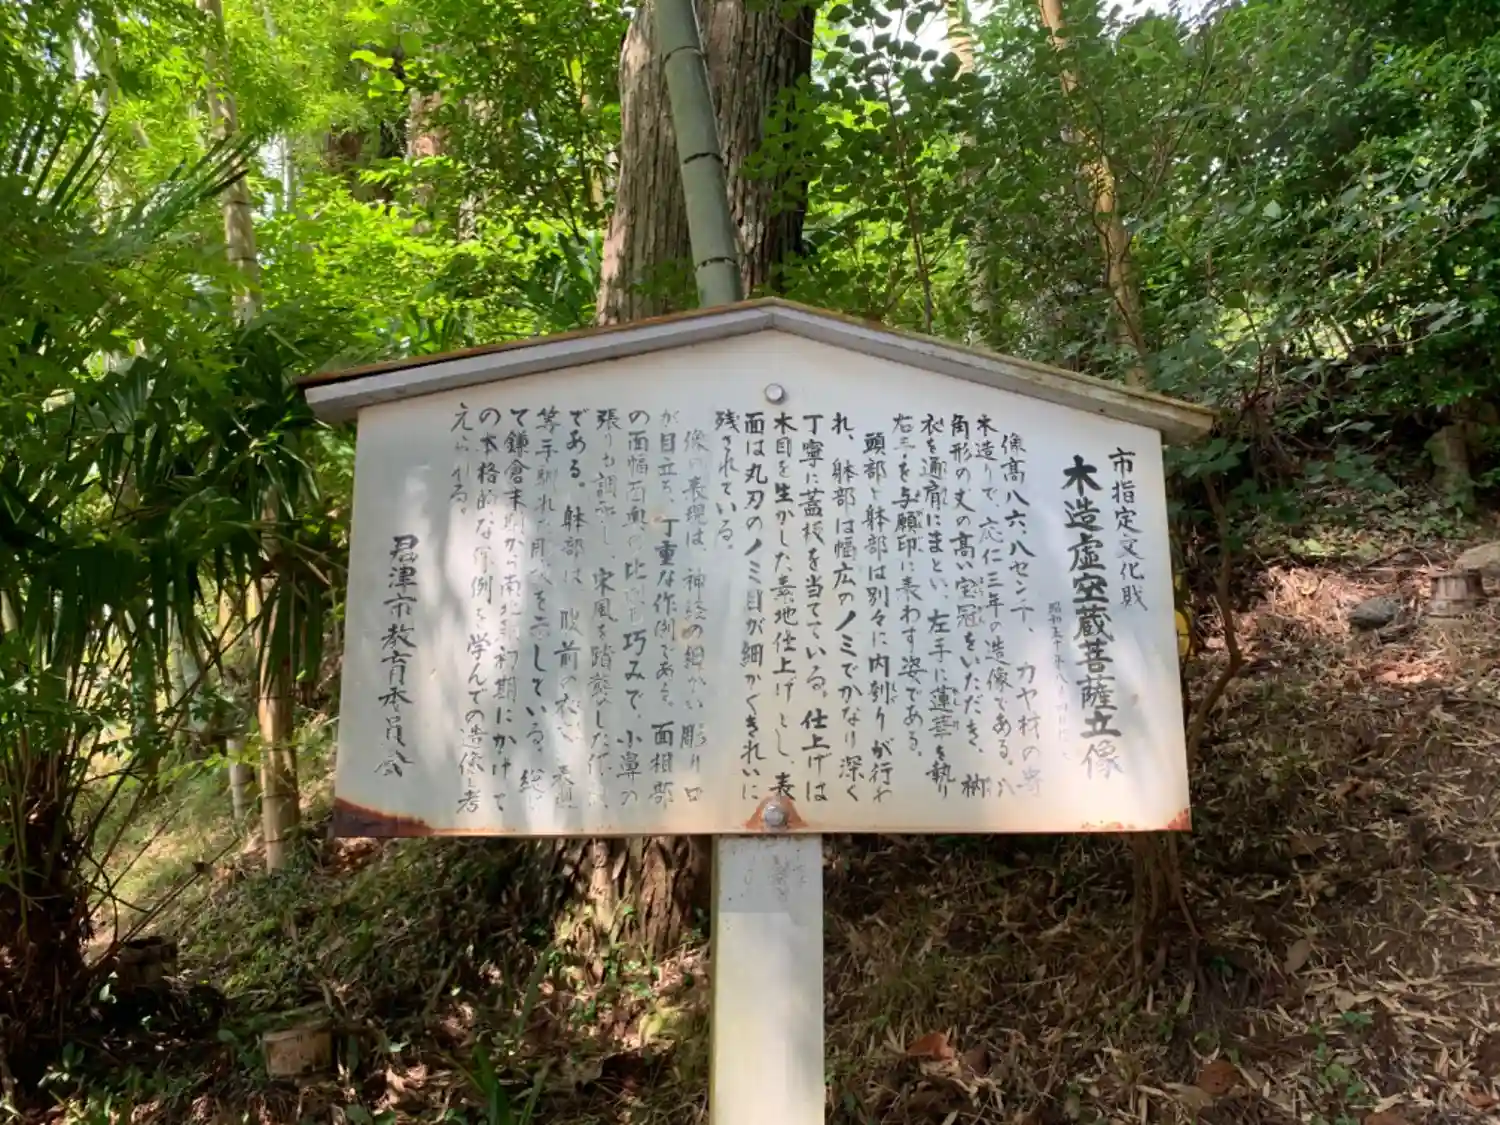 市指定文化財
木造虚空蔵菩薩立像
像高八六・八センチ、カヤ材の寄
木造りで、応仁三年の造像である。八
角形の丈の高い宝冠をいただき、衲
衣を通肩にまとい、左手に蓮華を執り
右手を与願印に表わす姿である。
頭部と躰部は別々に内刳りが行わ
れ、躰部は幅広のノミでかなり深く
丁寧に蓋板を当てている。仕上げは
木目を生かした素地仕上げとし、表
面は丸刃のノミ目が細かくきれいに
残されている。
像の表現は、神経の細かい彫り口
が目立ち、丁重な作例である。面相部
の面幅面奥の比例も巧みで、小鼻の
張りも調和し、宋風を踏襲した作
である。躰部は、腹前の衣
等手馴れた彫技を示している。総
て鎌倉末期から南北朝初期にかけて
の本格的な作例を学んでの造像と考
えられる。
君津市教育委員会